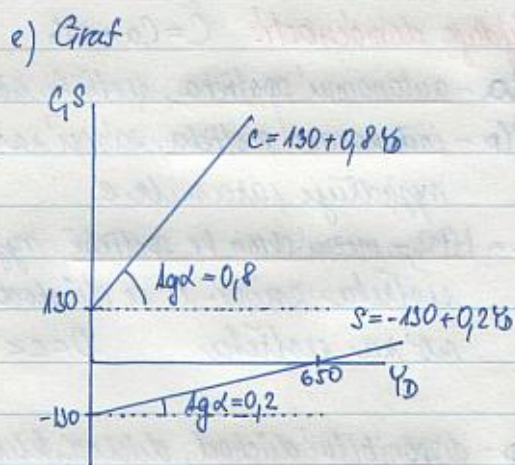 e) Graf
C,S
C = 130 + 0,8 YD
tgα = 0,8
130
S = -130 + 0,2 YD
650
YD
-130
tgα = 0,2